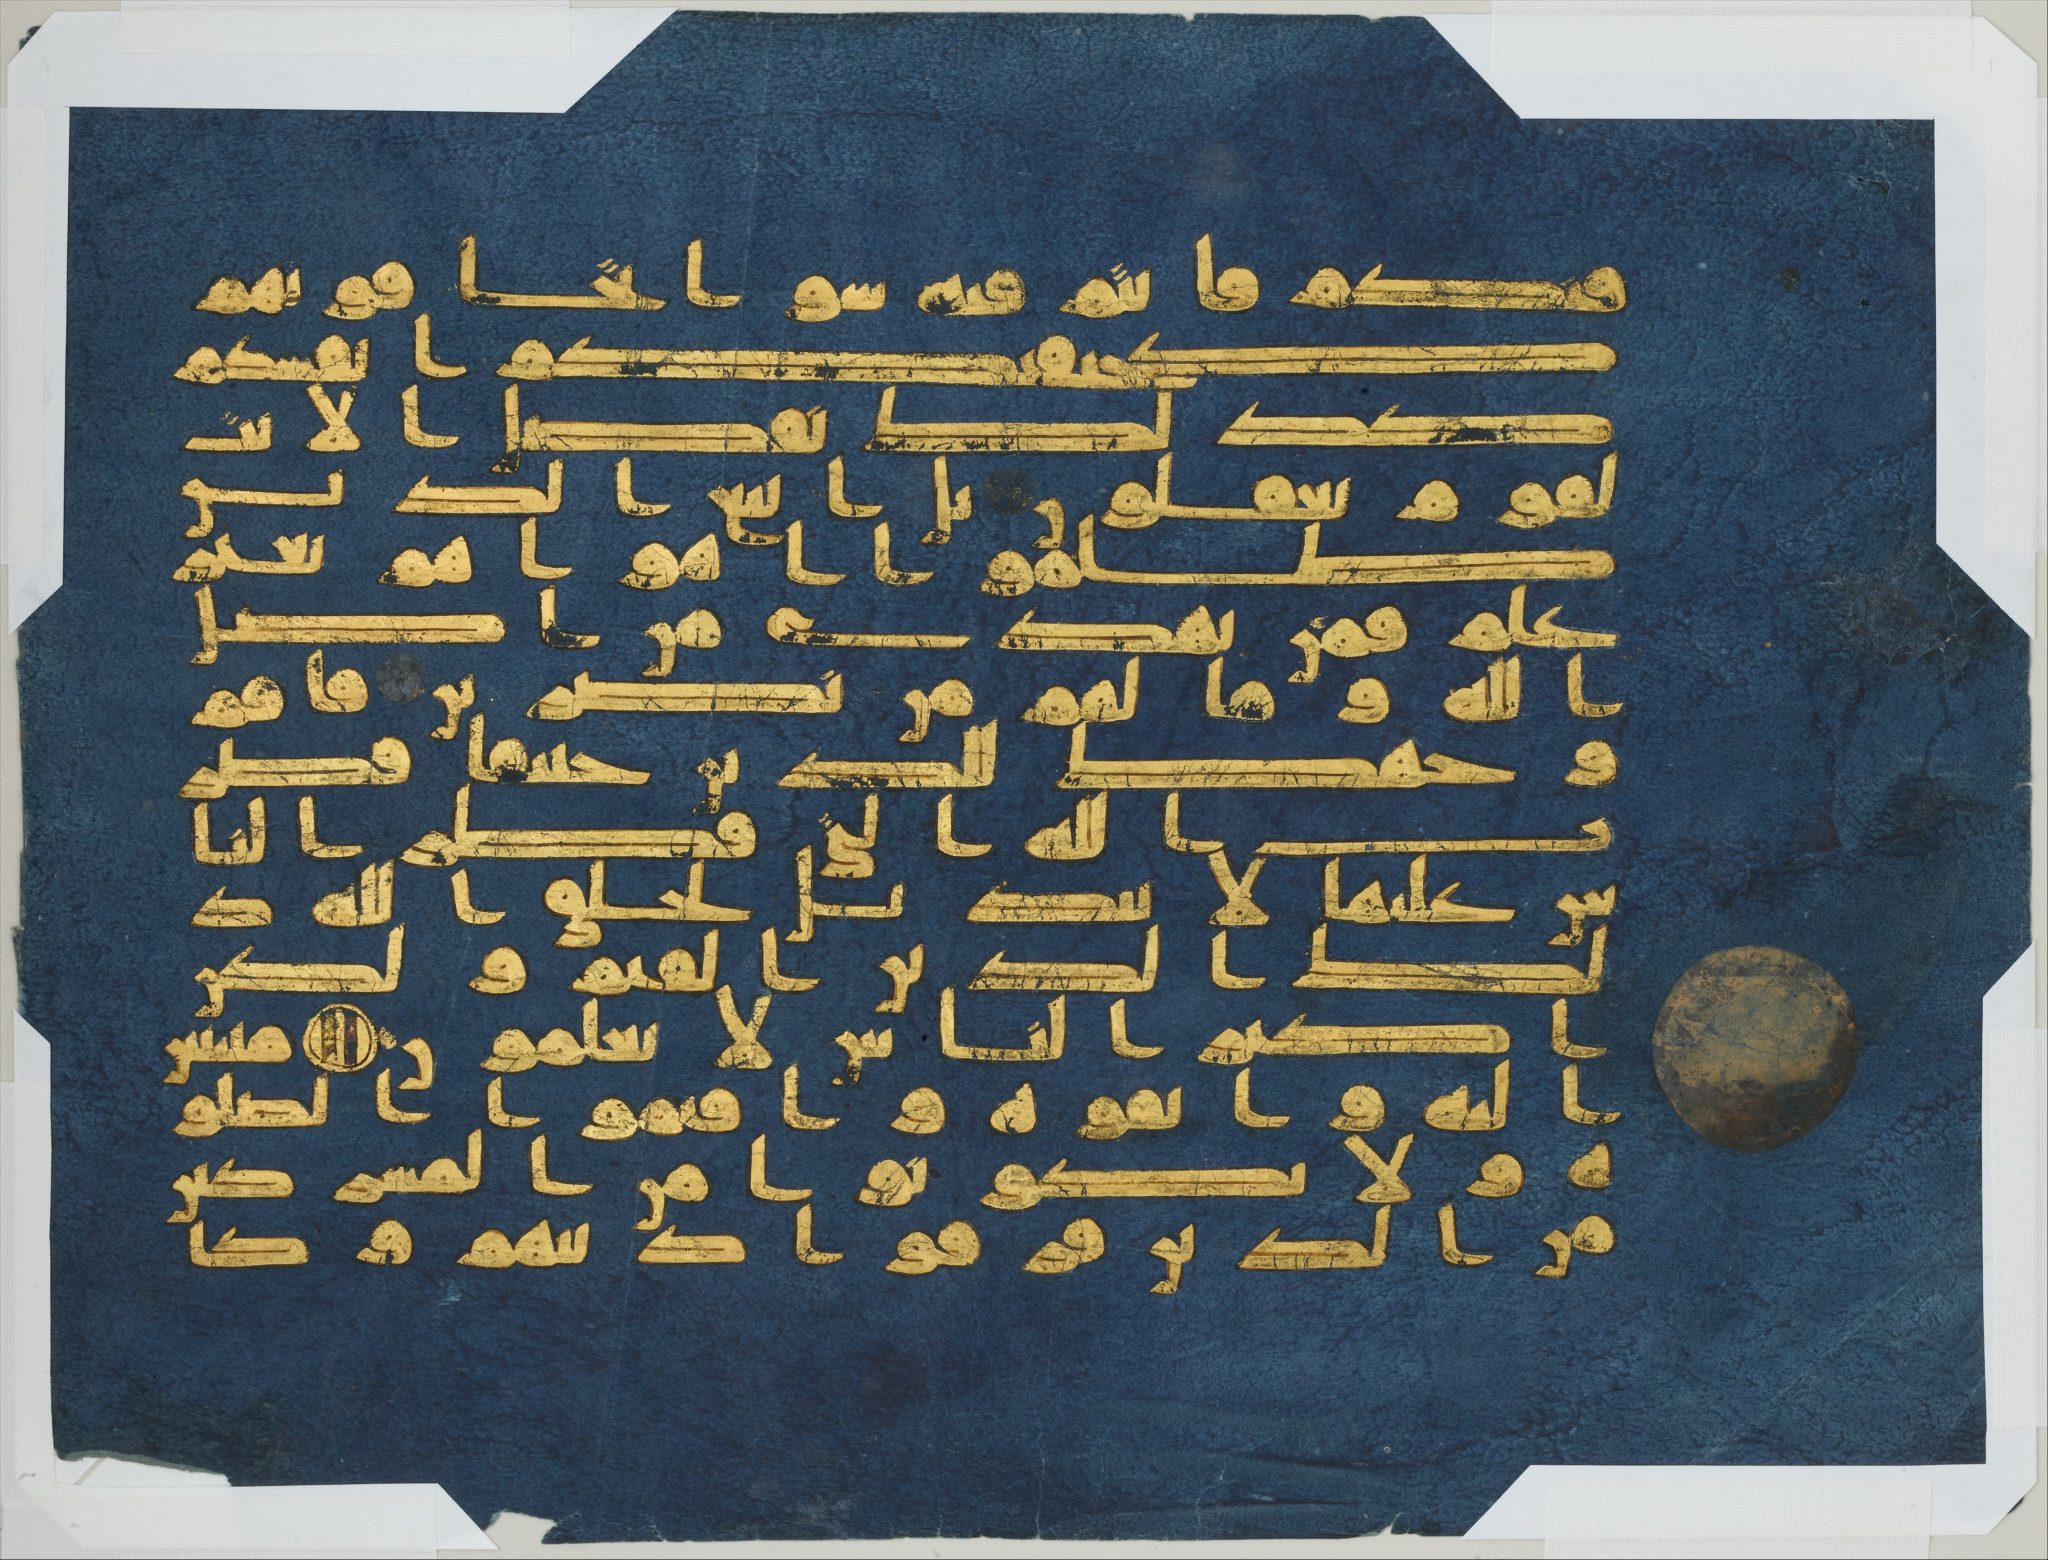 قنكم فانتم فيه سوا تخافونهم
كخيفتكم انفسكم
كذلك نفصل الايت
لقوم يعقلون بل اتبع الذين
ظلموا اهواهم بغير
علم فمن يهدي من اضل
الله وما لهم من نصرين فاقم
وجهك للدين حنيفا فطر
ت الله التي فطر النا
س عليها لا تبديل لخلق الله ذ
لك الدين القيم ولكن
اكثر الناس لا يعلمون منيبين
اليه واتقوه واقيموا الصلو
ة ولا تكونوا من المشركين
من الذين فرقوا دينهم وكا